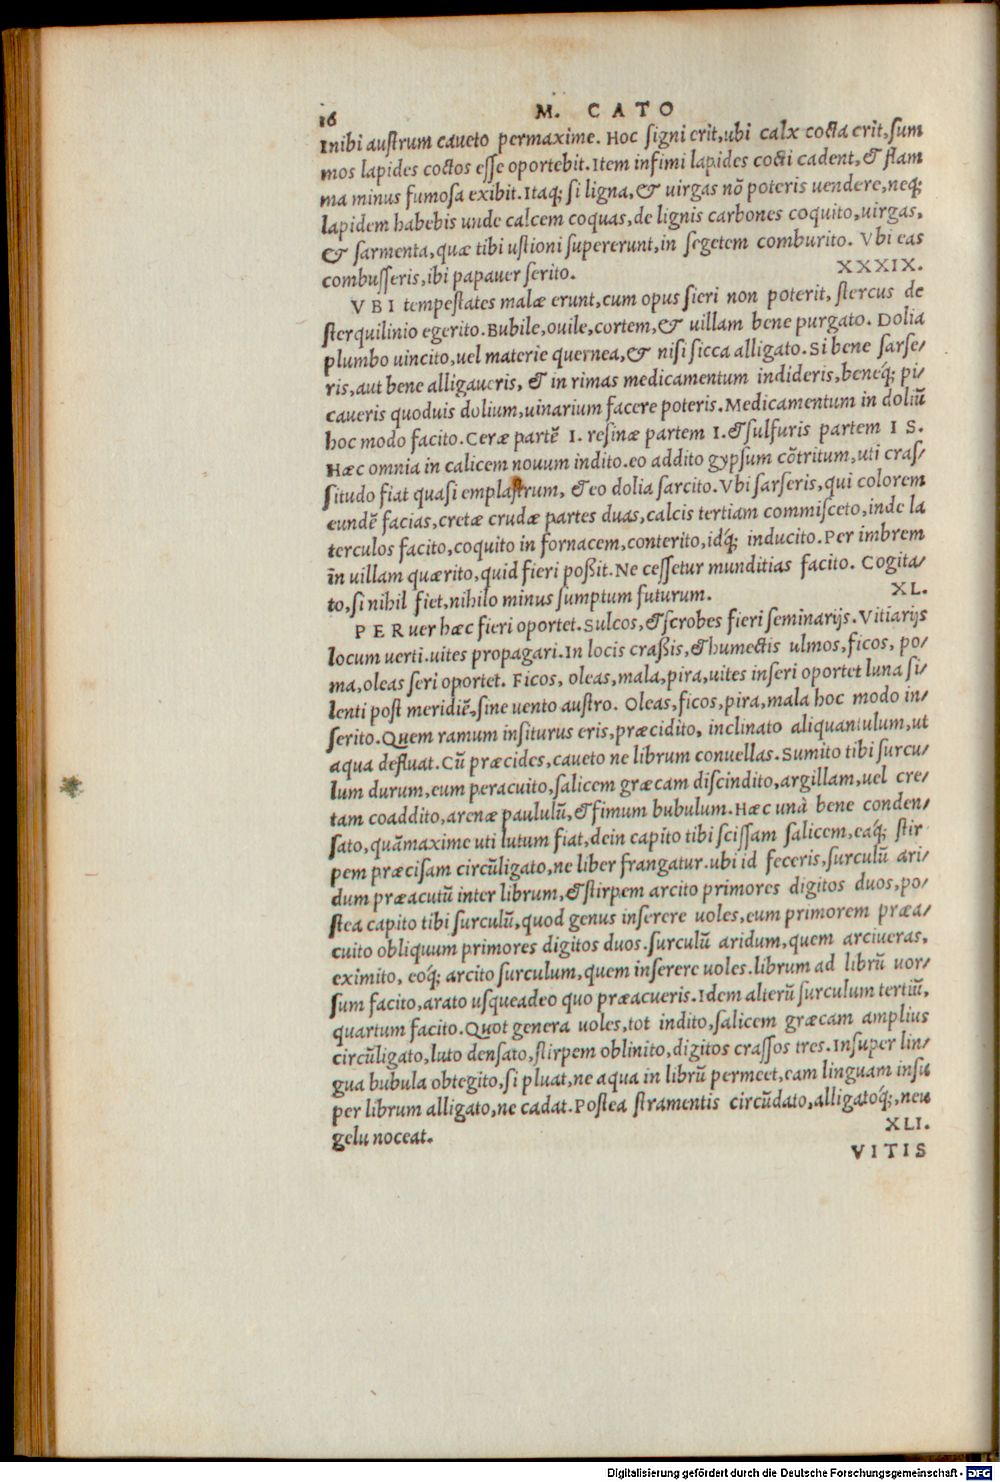 16
M. CATO
Inibi austrum caueto permaxime. Hoc signi erit, ubi calx cocta erit, sum
mos lapides coctos esse oportebit. Item infimi lapides cocti cadent, & flam
ma minus fumosa exibit. Itaq; si ligna, & uirgas nõ poteris uendere, neq;
lapidem habebis unde calcem coquas, de lignis carbones coquito, uirgas,
& sarmenta, quæ tibi ustioni supererunt, in segetem comburito. Vbi eas
combusseris, ibi papauer serito.
XXXIX.
VBI tempestates malæ erunt, cum opus fieri non poterit, stercus de
sterquilinio egerito. Bubile, ouile, cortem, & uillam bene purgato. Dolia
plumbo uincito, uel materie quernea, & nisi sicca alligato. Si bene sarse/
ris, aut bene alligaueris, & in rimas medicamentum indideris, beneq́; pi/
caueris quoduis dolium, uinarium facere poteris. Medicamentum in doliũ
hoc modo facito. Ceræ partẽ I. resinæ partem I. & sulfuris partem I S.
Hæc omnia in calicem nouum indito. eo addito gypsum cõtritum, uti cras/
situdo fiat quasi emplastrum, & eo dolia sarcito. Vbi sarseris, qui colorem
eundẽ facias, cretæ crudæ partes duas, calcis tertiam commisceto, inde la
terculos facito, coquito in fornacem, conterito, idq́; inducito. Per imbrem
in uillam quærito, quid fieri poßit. Ne cessetur munditias facito. Cogita/
to, si nihil fiet, nihilo minus sumptum futurum.
XL.
PER uer hæc fieri oportet. Sulcos, & scrobes fieri seminarijs. Vitiarijs
locum uerti. uites propagari. In locis craßis, & humectis ulmos, ficos, po/
ma, oleas seri oportet. Ficos, oleas, mala, pira, uites inseri oportet luna si/
lenti post meridiẽ, sine uento austro. Oleas, ficos, pira, mala hoc modo in/
serito. Quem ramum insiturus eris, præcidito, inclinato aliquantulum, ut
aqua defluat. Cũ præcides, caueto ne librum conuellas. Sumito tibi surcu/
lum durum, eum peracuito, salicem græcam discindito, argillam, uel cre/
tam coaddito, arenæ paululũ, & fimum bubulum. Hæc unà bene conden/
sato, quãmaxime uti lutum fiat, dein capito tibi scissam salicem, eaq́; stir
pem præcisam circũligato, ne liber frangatur. ubi id feceris, surculũ ari/
dum præacutũ inter librum, & stirpem arcito primores digitos duos, po/
stea capito tibi surculũ, quod genus inserere uoles, eum primorem præa/
cuito obliquum primores digitos duos. surculũ aridum, quem arciueras,
eximito, eoq́; arcito surculum, quem inserere uoles. librum ad librũ uor/
sum facito, arato usqueadeo quo præacueris. Idem alterũ surculum tertiũ,
quartum facito. Quot genera uoles, tot indito, salicem græcam amplius
circũligato, luto densato, stirpem oblinito, digitos crassos tres. Insuper lin/
gua bubula obtegito, si pluat, ne aqua in librũ permeet, eam linguam insu
per librum alligato, ne cadat. Postea stramentis circũdato, alligatoq́;, neu
gelu noceat.
XLI.
VITIS
Digitalisierung gefördert durch die Deutsche Forschungsgemeinschaft - DFG